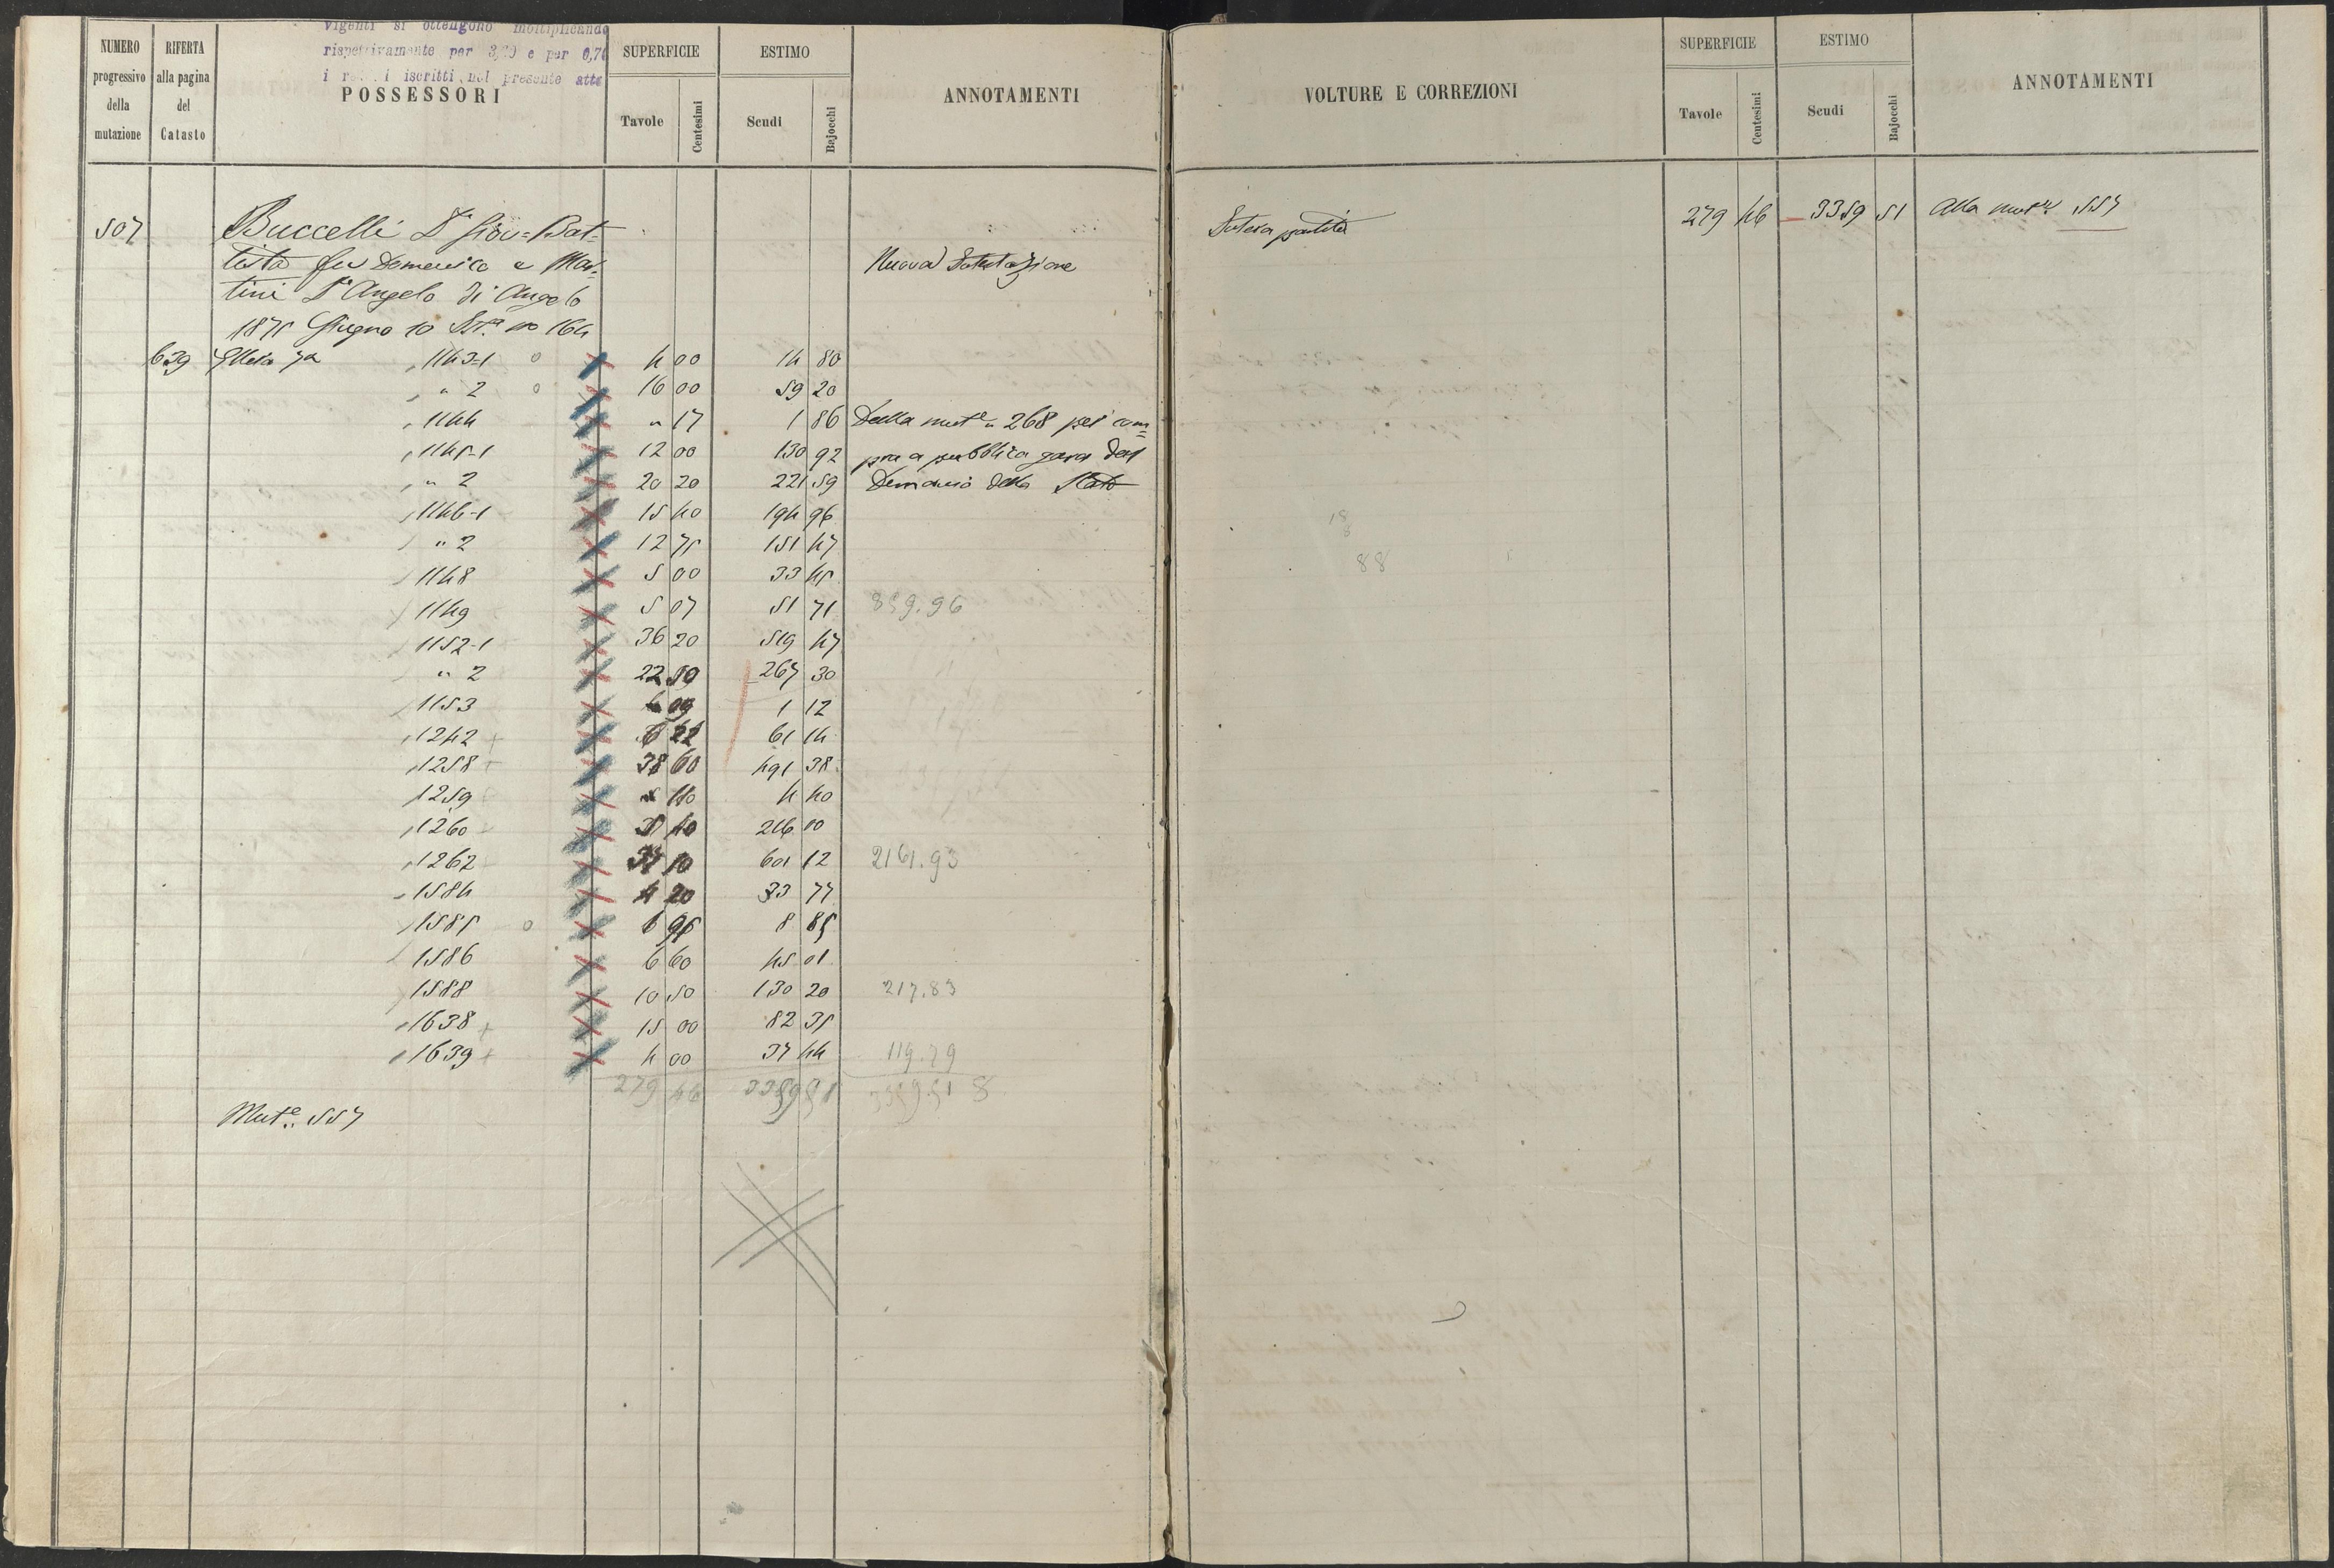 Vigenti si ottengono moltiplicando
rispettivamente per 3,70 e per 0,70
i iscritti nel presente atto
NUMERO progressivo della mutazione
RIFERTA alla pagina del Catasto
POSSESSORI
SUPERFICIE
Tavole
Centesimi
ESTIMO
Scudi
Bajocchi
ANNOTAMENTI
507 Buccelli Dr Giov= Bat=
tista fu Domenico e Mar=
tini Dr Angelo di Angelo
Nuova Intestazione
1875 Giugno 10 no 164
639 1143-1 4 00 14 80
" 2 16 00 59 20
1144 " 17 1 86 Dalla mute n 268 per com=
1145-1 12 00 130 92 pra a pubblica gara dal
" 2 20 20 221 59 Demanio dello Stato
1146-1 15 40 194 96
" 2 12 75 151 47
1148 5 00 33 45
1149 5 07 51 71 859.96
1152-1 36 20 519 47
" 2 22 50 267 30
1153 09 1 12
1242 22 61 14
1258 38 60 491 38
1259 40 4 40
1260 40 216 00
1262 37 10 601 12 2161.93
1584 4 20 33 77
1585 6 95 8 85
1586 6 60 45 01
1588 10 50 130 20 217.83
1638 15 00 82 35
1639 4 00 37 44 119.79
279 46 3359 51 3359.51 8
Mute. 557
VOLTURE E CORREZIONI
SUPERFICIE
Tavole
Centesimi
ESTIMO
Scudi
Bajocchi
ANNOTAMENTI
Intera partita 279 46 3359 51 Alla mute. 557
18
8
88